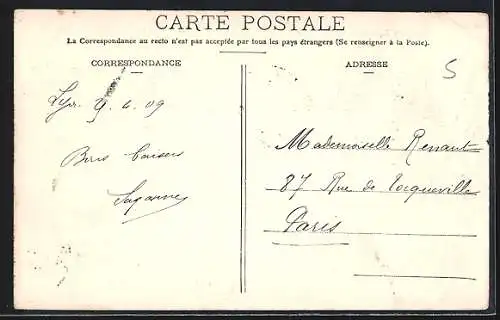 CARTE POSTALE
La Correspondance au recto n'est pas acceptée par tous les pays étrangers (Se renseigner à la Poste).
CORRESPONDANCE
ADRESSE
5
9. 6. 09
Bons baisers
Suzanne
Mademoiselle Renault
87 Rue de Tocqueville
Paris